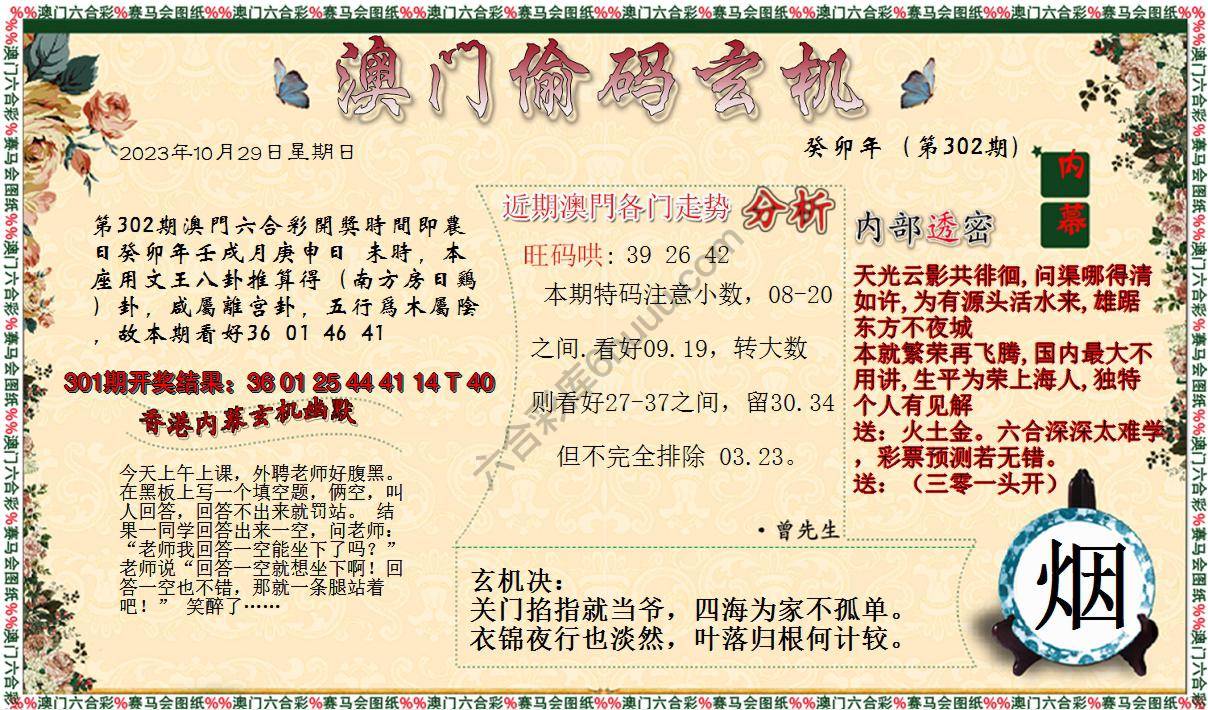 %%澳门六合彩%赛马会图纸%%澳门六合彩%赛马会图纸%%澳门六合彩%赛马会图纸%%澳门六合彩%赛马会图纸%%澳门六合彩%赛马会图纸%%澳门六合彩%赛马会图纸
澳门偷码玄机
2023年10月29日星期日
癸卯年（第302期）
内
幕
第302期澳門六合彩開獎時間即農
日癸卯年壬戌月庚申日 未時，本
座用文王八卦推算得（南方房日鷄
）卦，咸屬離宫卦，五行爲木屬陰
，故本期看好36 01 46 41
301期开奖结果：36 01 25 44 41 14 T 40
香港内幕玄机幽默
今天上午上课，外聘老师好腹黑。
在黑板上写一个填空题，俩空，叫
人回答，回答不出来就罚站。 结
果一同学回答出来一空，问老师：
“老师我回答一空能坐下了吗？”
老师说“回答一空就想坐下啊！回
答一空也不错，那就一条腿站着
吧！” 笑醉了……
近期澳門各门走势 分析
旺码哄: 39 26 42
本期特码注意小数，08-20
之间.看好09.19，转大数
则看好27-37之间，留30.34
但不完全排除 03.23。
·曾先生
内部透密
天光云影共徘徊,问渠哪得清
如许,为有源头活水来,雄踞
东方不夜城
本就繁荣再飞腾,国内最大不
用讲,生平为荣上海人,独特
个人有见解
送：火土金。六合深深太难学
，彩票预测若无错。
送：（三零一头开）
玄机决：
关门掐指就当爷，四海为家不孤单。
衣锦夜行也淡然，叶落归根何计较。
烟
%%澳门六合彩%赛马会图纸%%澳门六合彩%赛马会图纸%%澳门六合彩%赛马会图纸%%澳门六合彩%赛马会图纸%%澳门六合彩%赛马会图纸%%澳门六合彩%赛马会图纸